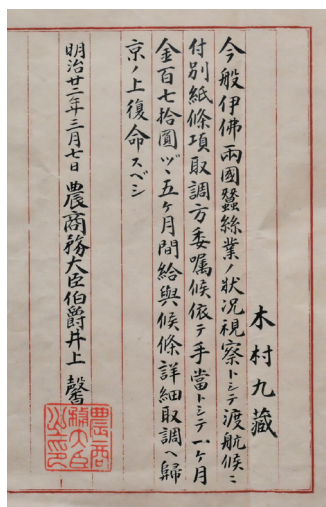 木村九藏
今般伊佛兩國蠶絲業ノ狀况視察トシテ渡航候ニ
付別紙條項取調方委嘱候依テ手當トシテ一ヶ月
金百七拾圓ヅヽ五ヶ月間給與候條詳細取調ヘ歸
京ノ上復命スベシ
明治廿二年三月七日 農商務大臣伯爵井上 馨
農商務大臣之印